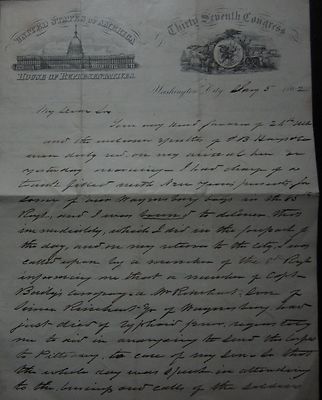 UNITED STATES OF AMERICA
HOUSE OF REPRESENTATIVES.
Thirty Seventh Congress
Washington City Jany 5 1862
My Dear Sir
Your very kind favor of 28th
and the enclosure
were duly recd. on my arrival here on
yesterday morning. I had charge of a
trunk filled with New Years presents for
some of our Waynesburg boys in the 8th
Regt, and I was bound to deliver them
immediately, which I did in the forepart of
the day, and on my return to the city, I was
called upon by a member of the Regt
informing me that a member of Capt
company a Mr Rinehart, Son of
Rinehart Esqr of Waynesburg had
just died of Typhoid fever, requesting
me to aid in arranging to send the corpse
to Pittsburg, to care of my Son so that
the whole day was spent in attending
to the business and calls of the Soldiers